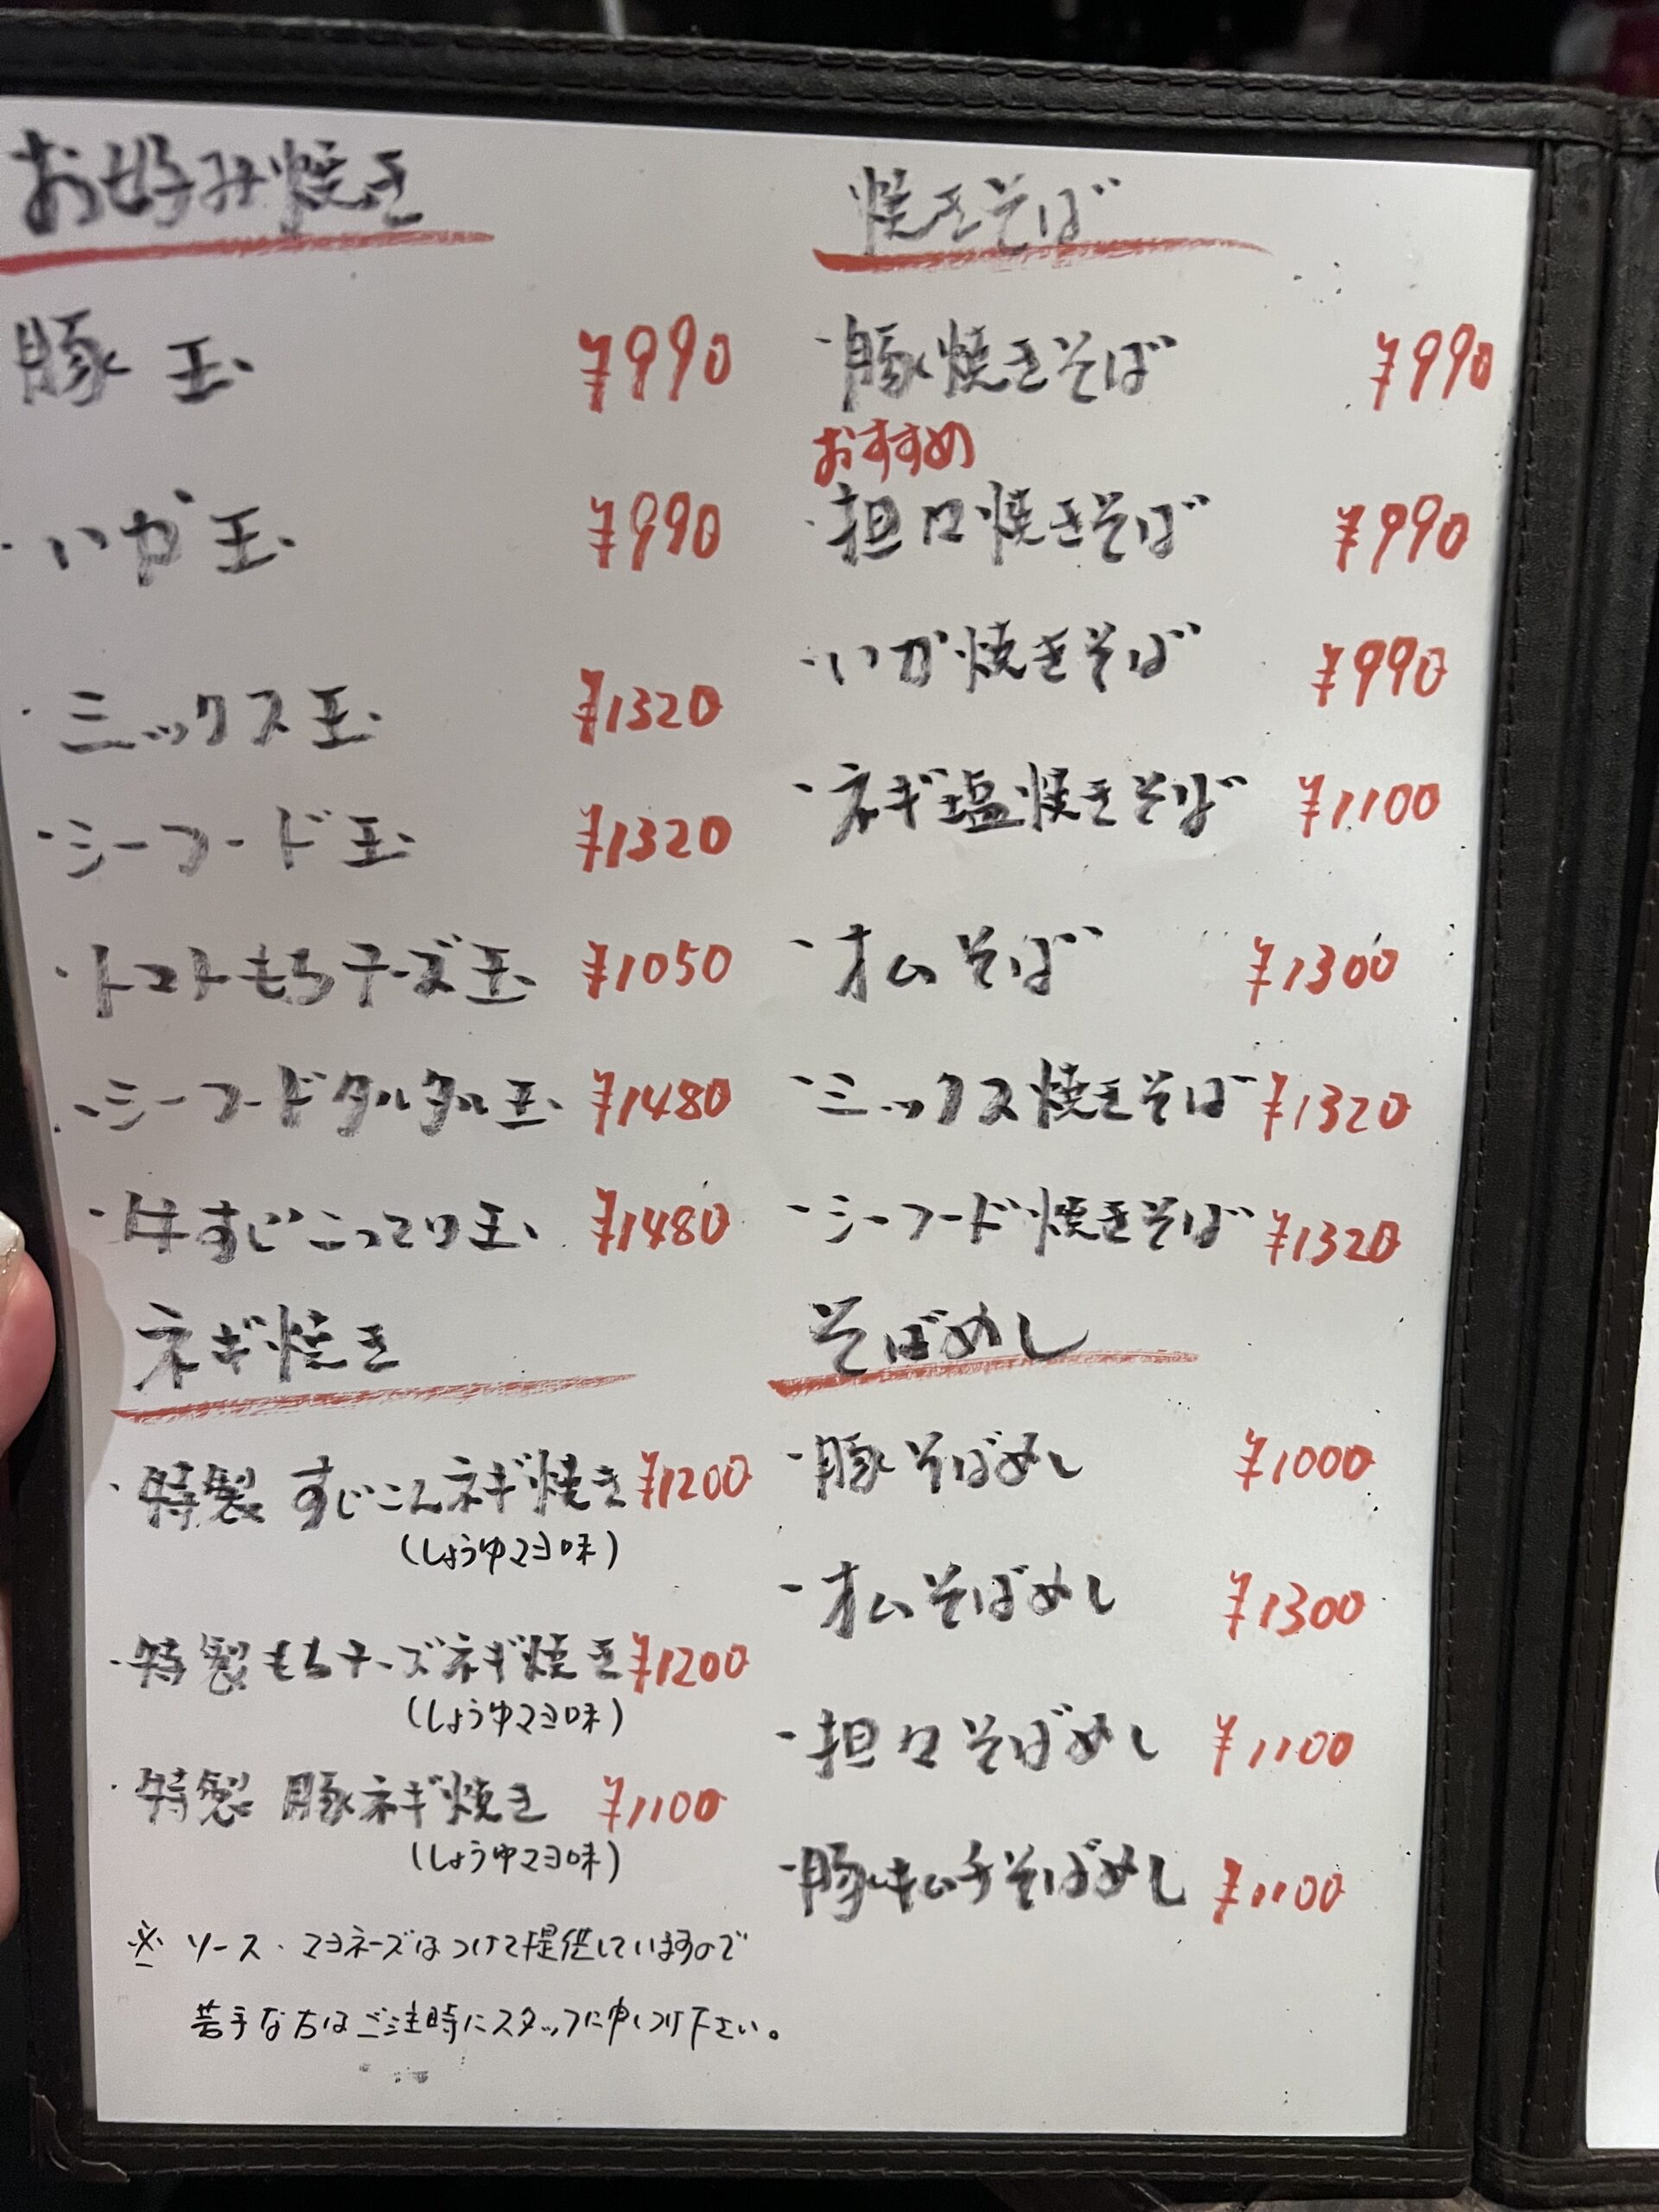 お好み焼き
豚玉 ¥990
・いか玉 ¥990
・ミックス玉 ¥1320
・シーフード玉 ¥1320
・トマトもちチーズ玉 ¥1050
・シーフードタルタル玉 ¥1480
・牛すじこってり玉 ¥1480
ネギ焼き
・特製 すじこんネギ焼き ¥1200
(しょうゆマヨ味)
・特製もちチーズネギ焼き ¥1200
(しょうゆマヨ味)
・特製 豚ネギ焼き ¥1100
(しょうゆマヨ味)
※ ソース・マヨネーズはつけて提供していますので
苦手な方はご注時にスタッフに申しつけ下さい。
焼きそば
・豚焼きそば ¥990
おすすめ
・担々焼きそば ¥990
・いか焼きそば ¥990
・ネギ塩焼きそば ¥1100
・オムそば ¥1300
・ミックス焼きそば ¥1320
・シーフード焼きそば ¥1320
そばめし
・豚そばめし ¥1000
・オムそばめし ¥1300
・担々そばめし ¥1100
・豚キムチそばめし ¥1100